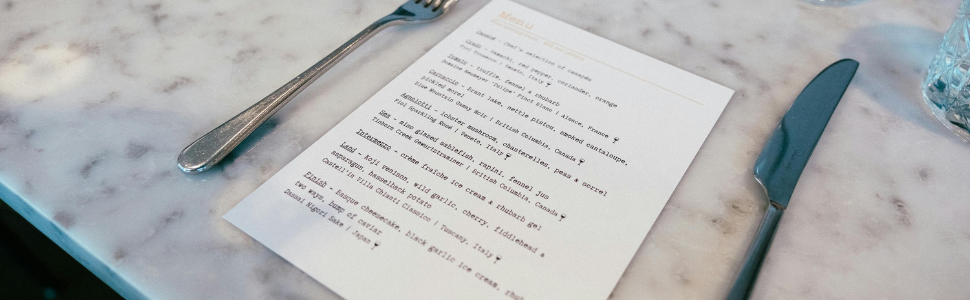 Menu
Canapé - Chef's selection of canapés
Crudo - hamachi, red pepper, coriander, orange
Fiol Prosecco | Veneto, Italy
Tomato - truffle, fennel & rhubarb
Domaine "Tulipe" Pinot Blanc | Alsace, France
Carpaccio - brant lake, nettle pistou, smoked cantaloupe,
pickled morel
Blue Mountain Gamay Noir | British Columbia, Canada
Agnolotti - lobster mushroom, chanterelles, peas & sorrel
Fiol Sparkling Rosé | Veneto, Italy
Sea - miso glazed sablefish, rapini, fennel jus
Tinhorn Creek Gewürztraminer | British Columbia, Canada
Intermezzo - crème fraîche ice cream & rhubarb gel
Land - Koji venison, wild garlic, cherry, fiddlehead &
asparagus, hasselback potato
Castell'in Villa Chianti Classico | Tuscany, Italy
Finish - Basque cheesecake, black garlic ice cream, rhub
two ways, bump of caviar
Dassai Nigori Sake | Japan